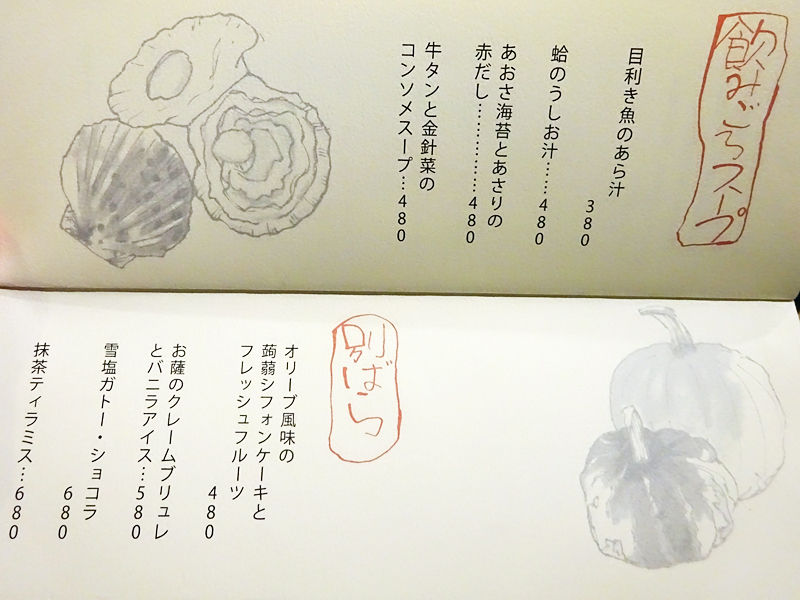 飲みごろスープ
目利き魚のあら汁
380
蛤のうしお汁……480
あおさ海苔とあさりの
赤だし……………480
牛タンと金針菜の
コンソメスープ…480
別ばら
オリーブ風味の
蒟蒻シフォンケーキと
フレッシュフルーツ
480
お薩のクレームブリュレ
とバニラアイス…580
雪塩ガトー・ショコラ
680
抹茶ティラミス…680